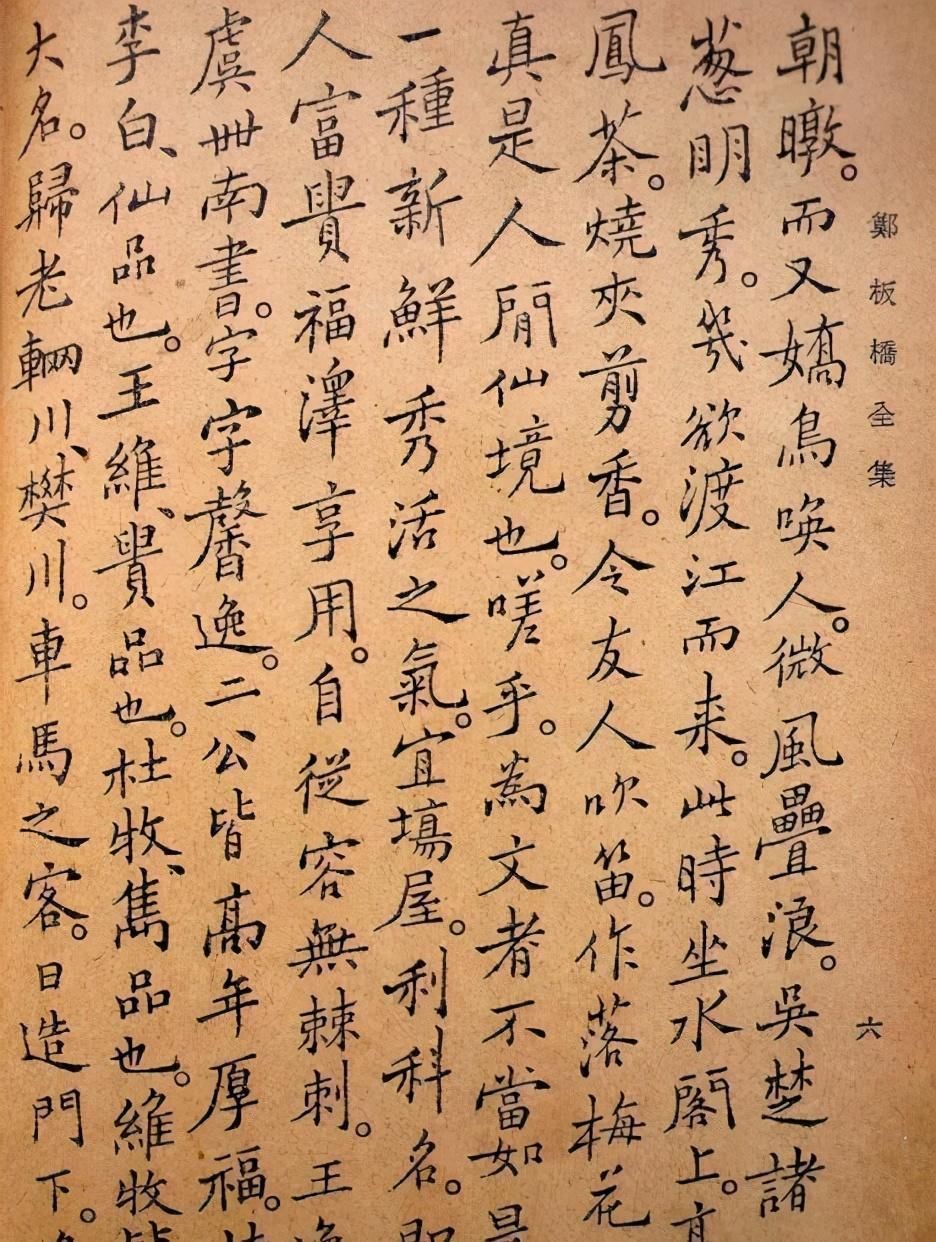 鄭板橋全集
六
朝暾。而又嬌鳥喚人。微風疊浪。吳楚諸
葱明秀。幾欲渡江而来。此時坐水閣上。
鳳茶。燒夾剪香。令友人吹笛。作落梅花
真是人閒仙境也。嗟乎。為文者不當如是
一種新鮮秀活之氣。宜塲屋。利科名。即
人富貴福澤享用。自從容無棘刺。王
虞世南書。字字馨逸。二公皆高年厚福。
李白、仙品也。王維、貴品也。杜牧、雋品也。維牧皆
大名。歸老輞川、樊川。車馬之客。日造門下。